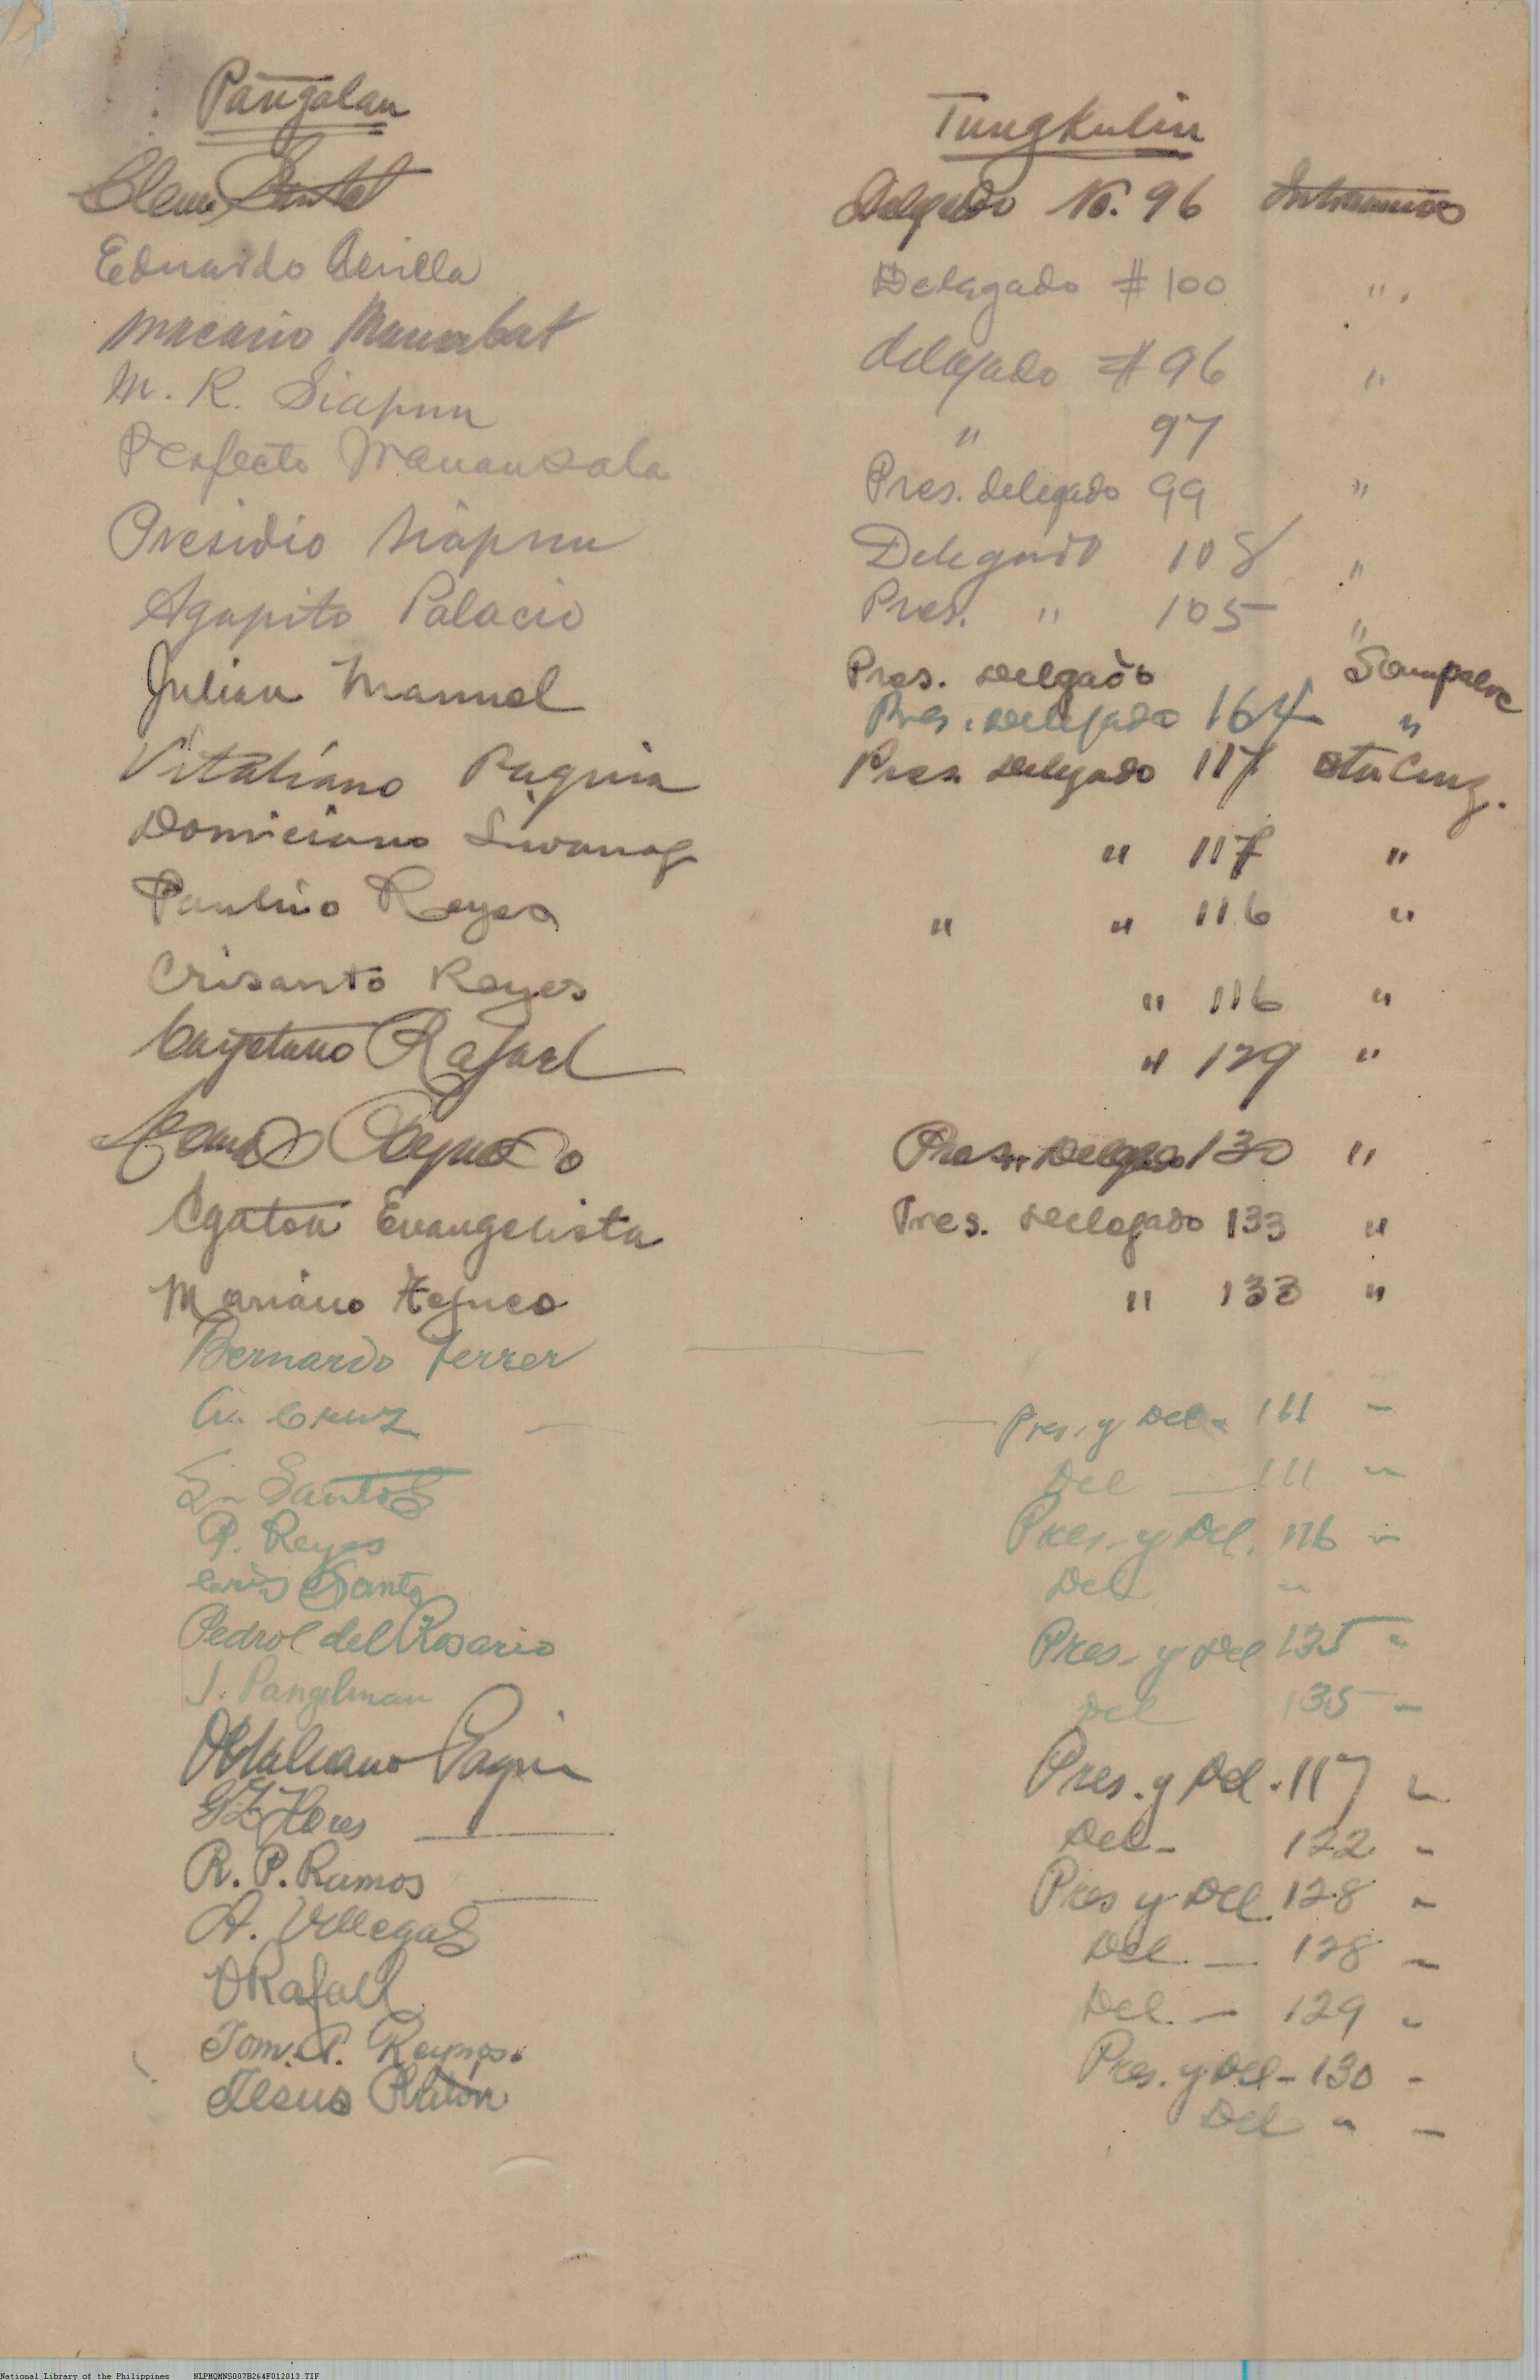 Pangalan Tungkulin
Delgado No. 96 Intramuros
Eduardo Delegado # 100 " .
Macario Manabat delegado # 96 "
M. R. Siapnu " 97
Perfecto Manansala Pres. delegado 99 "
Presidio Siapnu Delegado 108 "
Agapito Palacio Pres. " 105 "
Julian Manuel Pres. Delgado Sampaloc
Pres. Delegado 164 "
Vitaliano Paguia Pres. Delegado 117 Sta Cruz.
Domiciano Liwanag " 117 "
Paulino Reyes " " 116 "
Crisanto Reyes " 116 "
Cayetano Rafael " 129 "
Pres. 130 "
Agaton Evangelista Pres. Delegado 133 "
Mariano " 133 "
Bernardo Ferrer
Cruz Pres. y Del - 111 "
Santos Del — 111 "
P. Reyes Pres. y Del. 116 "
Del "
Pedro del Rosario Pres. y Del 125 "
J. Pangelinan Del 135 "
Vitaliano Paguia Pres. y Del. 117 "
Flores Del - 122 "
R. P. Ramos Pres y Del. 128 "
A. Villegas Del. — 128 "
Rafael Del. — 129 "
Tom. P. Pres. y Del - 130 "
Jesus Del " "
National Library of the Philippines NLPMQMNS007B264F012013.TIF